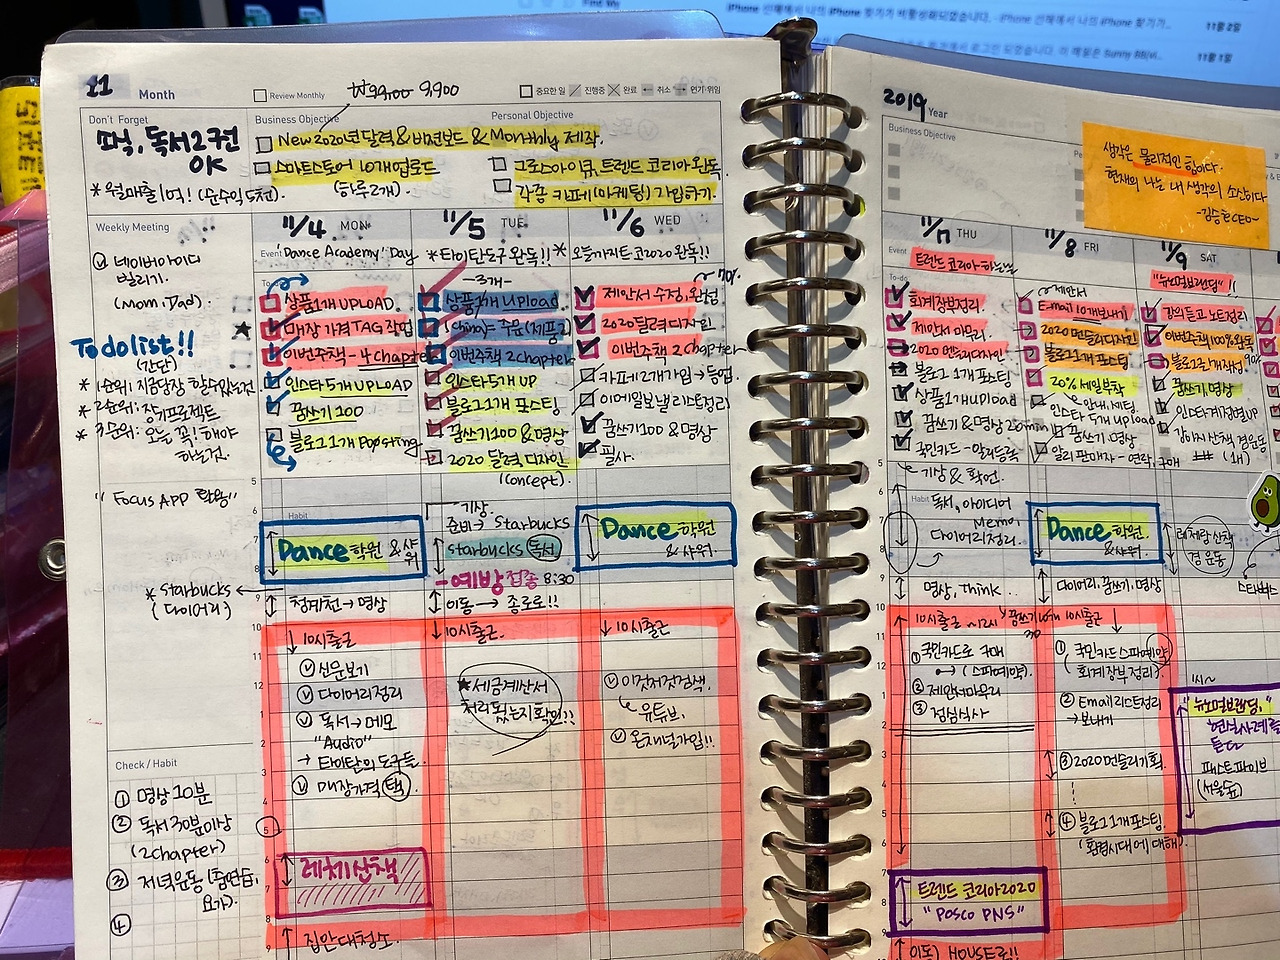 Find My
11월 2일
11월 1일
11 Month
Review Monthly
₩99,00 9,900
중요한 일 진행중 완료 취소 연기·위임
Don't Forget
책, 독서2권
OK
*월매출1억! (순수익5천)
Business Objective
Personal Objective
New2020년달력&비전보드&Monthly 제작.
스마트스토어 10개업로드
(하루2개)
그로스아이큐,트렌드 코리아완독
각종 카페(마케팅)가입하기.
Weekly Meeting
네이버아이디
빌리기.
(Mom.Dad)
To do list!!
(간단)
* 1순위: 지금당장 할수있는것
* 2순위: 장기프로젝트
* 3순위: 오늘 꼭! 해야
하는것.
"Focus APP 활용"
* Starbucks
(다이어리)
Check / Habit
① 명상10분
② 독서30분이상
(2chapter)
③ 저녁운동(춤연습,
요가).
④
11/4 MON
Event "Dance Academy" Day
상품1개 UPLOAD
매장 가격TAG 작업
이번주책-4chapter
인스타5개UPLOAD
꿈쓰기100
블로그1개 Posting
Habit
Dance 학원 &샤워
청계천→명상
10시출근
신문보기
다이어리정리
독서→메모
"Audio"
→ 타이탄의 도구들.
매장가격(택)
레체산책
집안대청소.
11/5 TUE
*타이탄도구완독!!*
-3개-
상품1개 upload
이번주책 2chapter
인스타5개 UP
블로그1개 포스팅
꿈쓰기100&명상
2020 달력디자인
(concept).
기상.
준비→ Starbucks
starbucks 독서
-예방접종 8:30
이동→종로로!!
10시출근.
*세금계산서
처리됐는지확인!!
11/6 WED
오늘까지트코2020완독!!
70%
제안서수정,완성
2020달력디자인
이번주책 2Chapter
카페2개가입→등업.
이메일보낼리스트정리
꿈쓰기100&명상
필사.
Dance 학원
& 샤워.
10시출근
이것저것검색.
유튜브.
온채널가입!!
2019 Year
Business Objective
생각은 물리적인 힘이다.
현재의 나는 내 생각의 소산이다
-김승호CEO-
11/7 THU
Event
트렌드코리아
회계장부정리.
제안서 마무리.
2020 멘들러디자인
블로그 1개포스팅
상품1개upload
꿈쓰기&명상 20min
기상&확언.
Habit
독서, 아이디어
Memo,
다이어리정리.
명상, Think..
10시출근
① 국민카드로 구매
→ (스파예약).
② 제안서마무리
③ 점심식사
트렌드 코리아2020
"POSCO PNS"
이동) HOUSE로!!
11/8 FRI
제안서
Email 10개보내기
블로그1개 포스팅
20%세일부착
인스타 5개 upload
꿈쓰기 명상
Dance 학원.
&샤워.
다이어리,꿈쓰기,명상
10시출근
① 국민카드스파예약
(회계장부정리)
② Email리스트정리
→보내기
③ 2020먼들리기획
④ 블로그1개포스팅.
(환경시대에 대해).
11/9 SAT
"뉴노멀브랜딩"!!
강의듣고노트정리
이번주책100%완독
꿈쓰기,명상
인스타계정영UP
레체랑산책
경 운동
스타벅스
1시~
"뉴노멀브랜딩,"
현실사례를
듣다
패스트파이브
(서울숲)